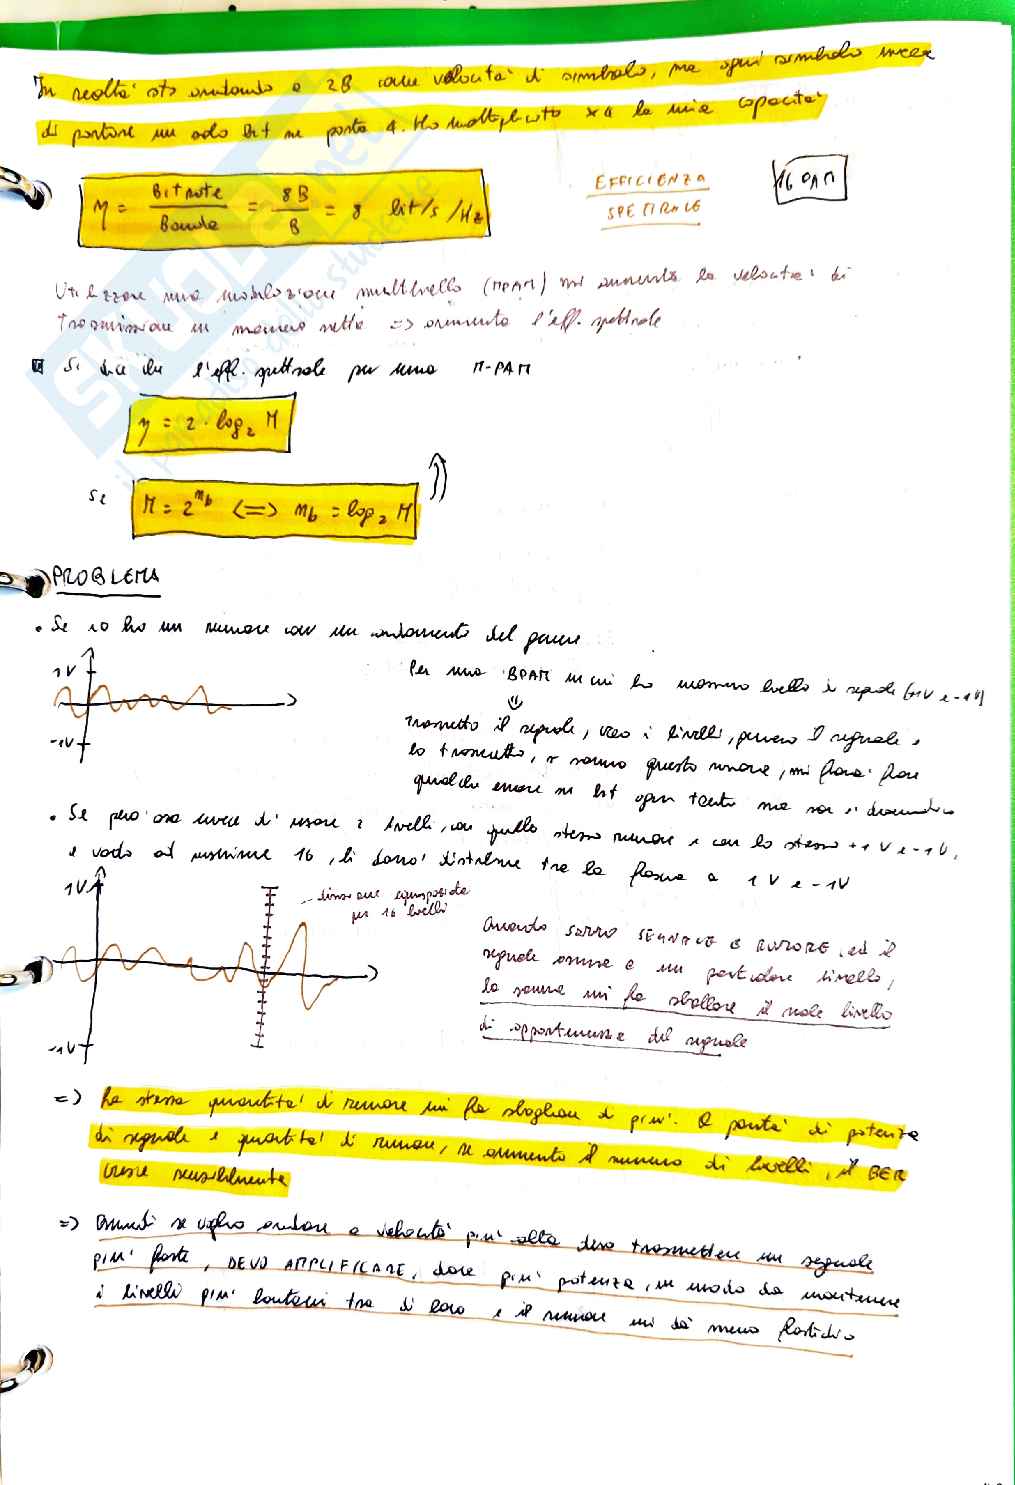 In realtà sto andando a 2B come velocità di simbolo, ma ogni simbolo invece
di portare un solo bit ne porta 4. Ho moltiplicato x4 la mia capacità
η = Bitrate / Banda = 8B / B = 8 bit/s /Hz
EFFICIENZA
SPETTRALE
16 PAM
Utilizzare una modulazione multilivello (MPAM) mi aumenta la velocità di
trasmissione in maniera netta => aumenta l'eff. spettrale
Si dice che l'eff. spettrale per una M-PAM
η = 2 · log₂ M
Se
M = 2^nb <=> nb = log₂ M
PROBLEMA
• Se io ho un rumore con un andamento del genere
1V
-1V
Per una BPAM in cui ho massimo livello di segnale (+1V e -1V)
trasmetto il segnale, creo i livelli, genero il segnale e
lo trasmetto, e sommo questo rumore, mi farà fare
qualche errore sui bit ogni tanto ma non è drammatico
• Se però ora invece di usare 2 livelli, con quello stesso rumore e con lo stesso +1V e -1V,
e vado ad inserirne 16, li dovrò distribuire tra la fascia a 1V e -1V
1V
-1V
dinamica equispaziata
per 16 livelli
Quando SOMMO SEGNALE E RUMORE, ed il
segnale associa a un particolare livello,
la somma mi fa sballare il reale livello
di appartenenza del segnale
=> La stessa quantità di rumore mi fa sbagliare di più. A parità di potenza
di segnale e quantità di rumore, se aumento il numero di livelli, il BER
cresce sensibilmente
=> Quindi se voglio andare a velocità più alta devo trasmettere un segnale
più forte, DEVO AMPLIFICARE, dare più potenza, in modo da mantenere
i livelli più lontani tra di loro e il rumore mi dà meno fastidio
SKUOLA.net
il portale dello studente